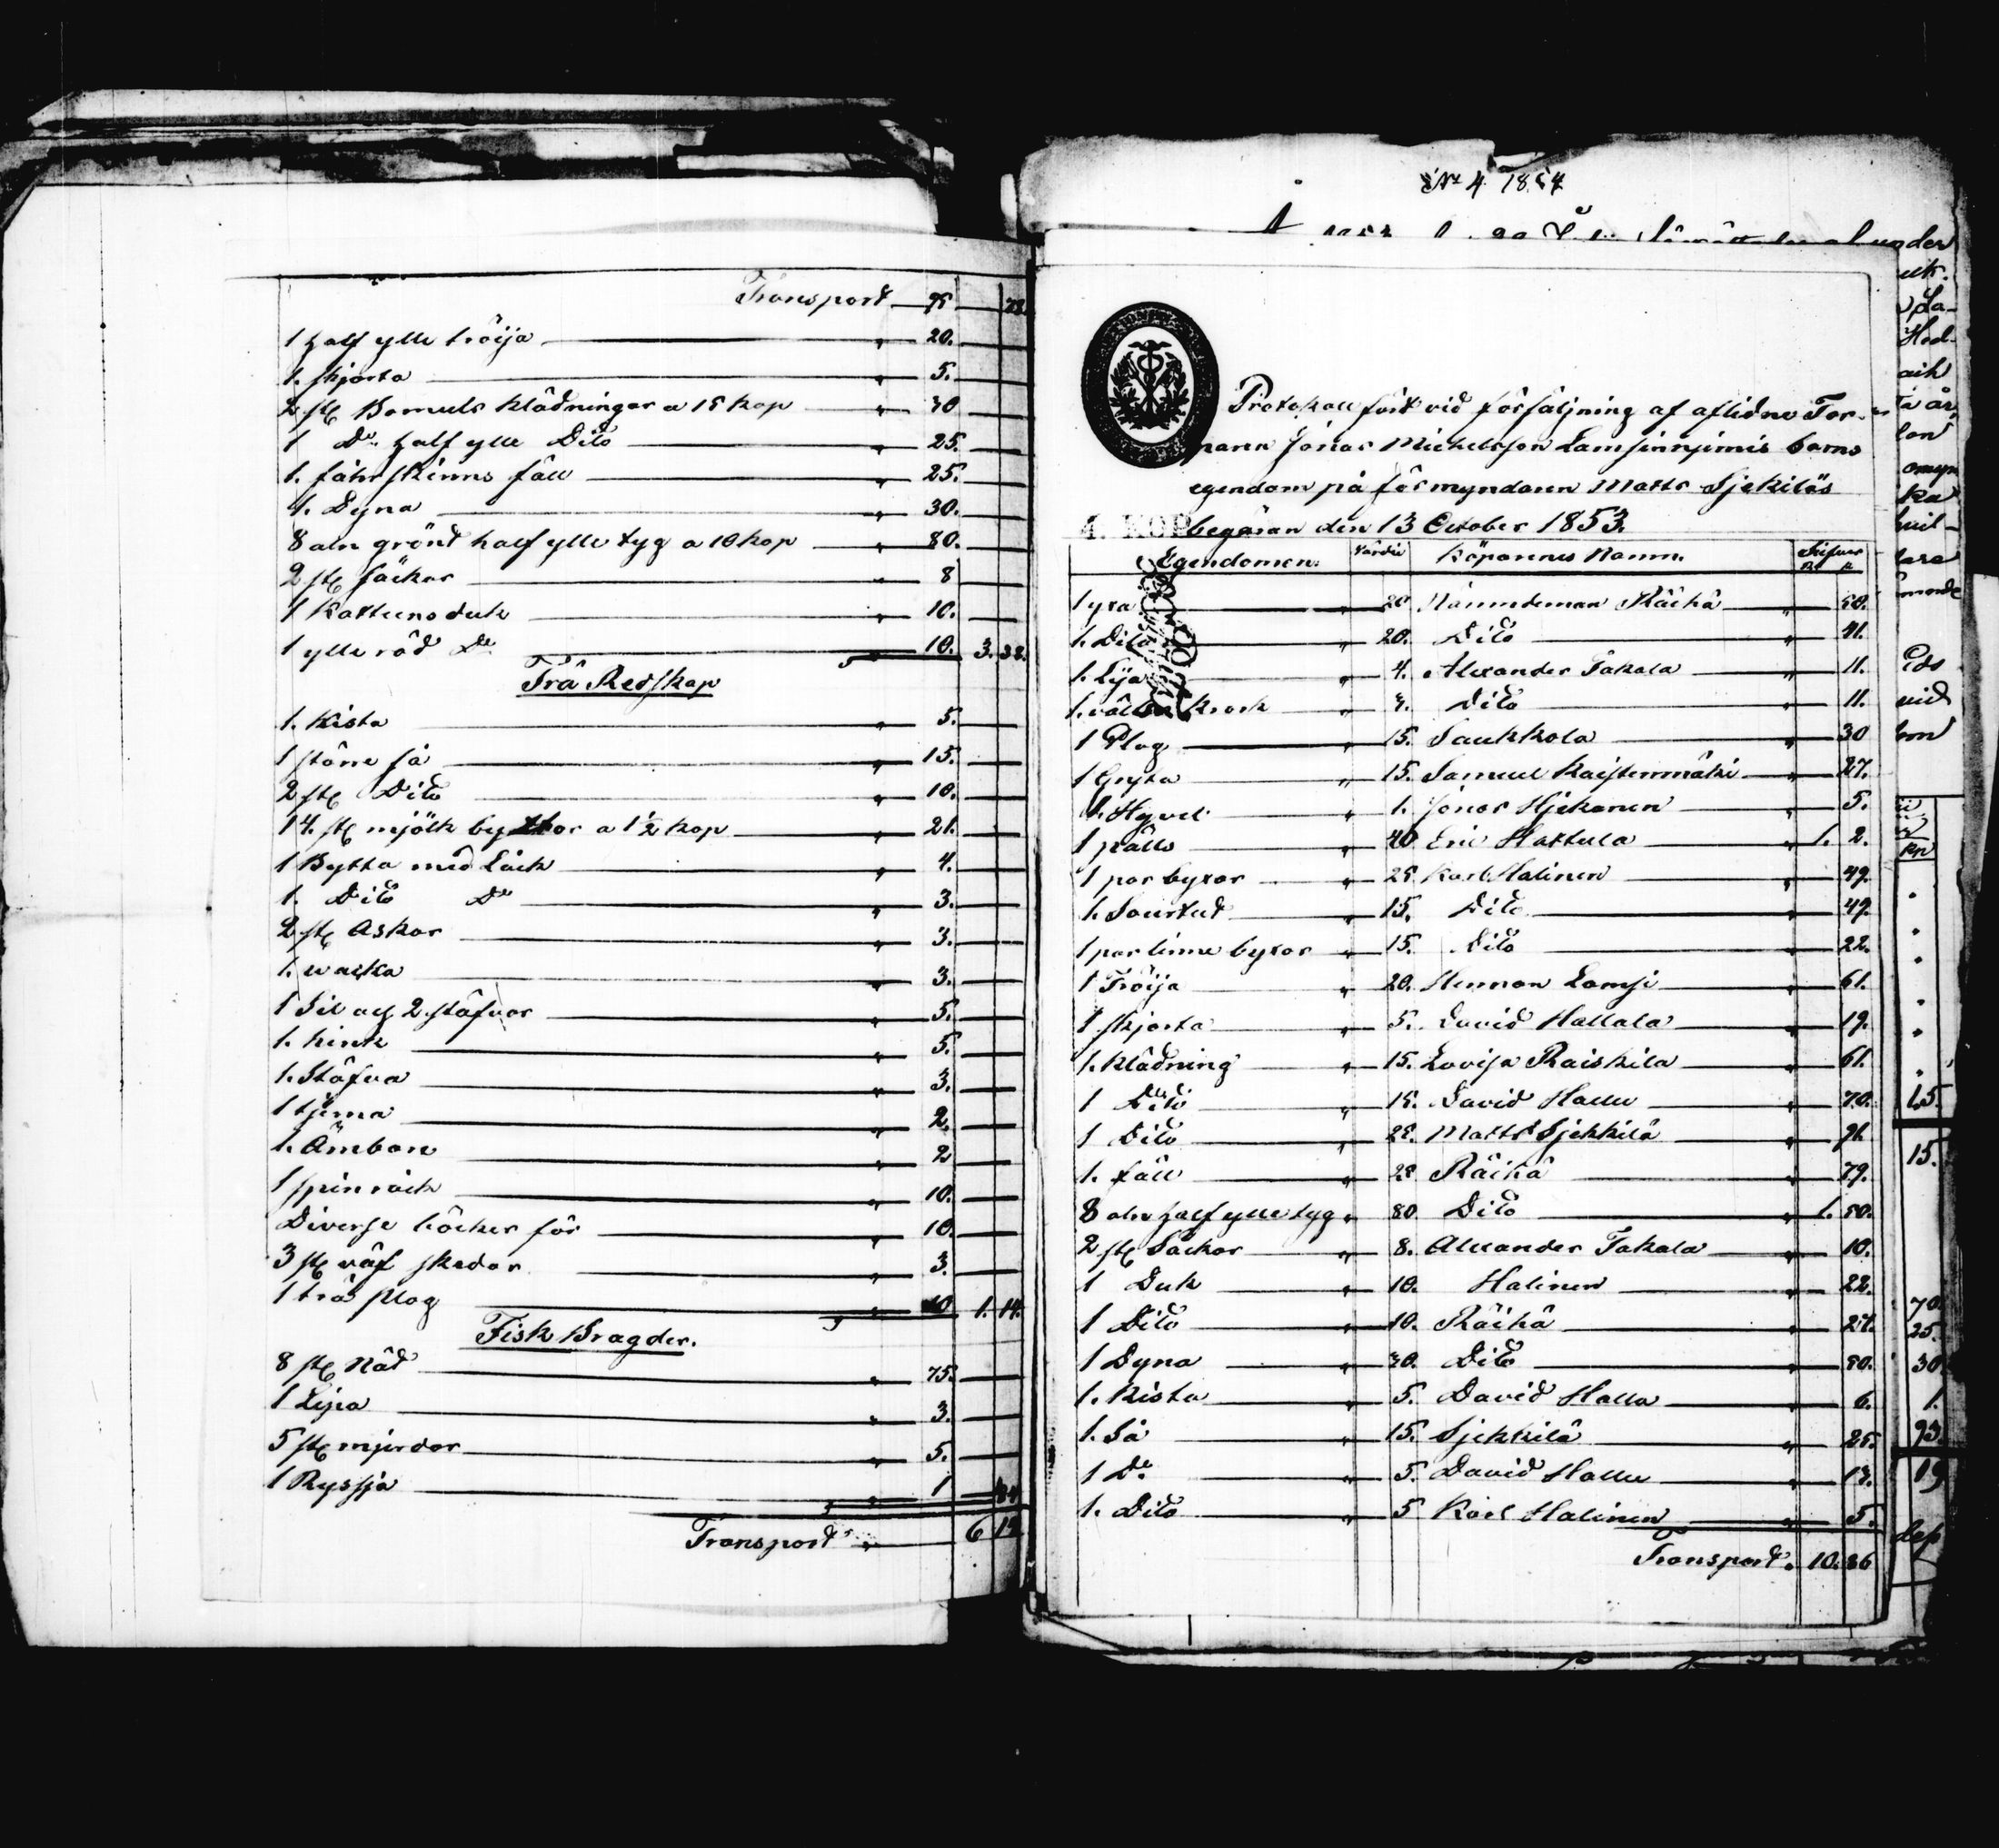 Transport 95 78.
1 half ylle tröija " 20.
1. skjorta " 5.
2 st Bomuls klädningar a 15 kop " 30
1 Do half ylle Dito " 25.
1. fåhrskinns fäll " 25.
1. Dyna " 30.
8 aln grönt half ylle tyg a 10 kop " 80.
2 st säckar " 8
1 Kattuns duk " 10.
1 ylle röd Do " 10. 3. 38.
Trä Redskap
1. Kista " 5.
1 större så " 15.
2 st Dito " 10.
14. st mjölk byttor a 1½ kop " 21.
1 Bytta med Låck " 4.
1. Dito Do " 3.
2 st Askar " 3.
1. wacka " 3.
1 Sil och 2 stäfvor " 5.
1. kink " 5.
1. Stäfva " 3.
1 tjena " 2.
1. Ämbare " 2
1 spinråck " 10.
Diverse böcker för " 10.
3 st väf skedar " 3.
1 trä plog " 10 1. 14.
Fisk Bragder.
8 st Nät " 75.
1 Lina " 3.
5 st mjerdar " 5.
1 Ryssja " 1 84
Transport " 6 14
No 4. 1854
Protokoll fört vid försäljning af aflidne Tor-
paren Jonas Mickelsson Lamsinnjimis barns
egendom på förmyndaren Matts Sjekiläs
4. KOP begäran den 13 October 1853.
Egendomen. Värdie Köparnes Namn. Silfver R. k
1 yxa " 20 Nämndeman Räihä " 50.
1. Dito " 20. Dito " 41.
1. Lija " 4. Alexander Takala " 11.
1. krok " 3. Dito " 11.
1 Plog " 15. Saukkola " 30
1 Gryta " 15. Samuel Raistenmäki " 27.
1. Hyvel " 1. Jonas Hjekanen " 5.
1 pälls " 40 Eric Hattula " 1. 2.
1 par byxor " 25 Karl Halinen " 49.
1. Sourtut " 15. Dito " 49.
1 par linne byxor " 15. Dito " 22.
1 Tröija " 20. Herman Lamsi " 61.
1 skjorta " 5. David Hallala " 19.
1. klädning " 15. Lovisa Raiskila " 61.
1 Dito " 15. David Hallu " 70.
1 Dito " 25. Matts Sjekkilä " 91.
1. fäll " 25 Räihä " 79.
8 aln half ylle tyg " 80. Dito " 1. 50.
2 st Säckar " 8. Alexander Takala " 10.
1 Duk " 10. Halinen " 22.
1 Dito " 10. Räihä " 27.
1 Dyna " 30. Dito " 50.
1. Kista " 5. David Halla " 6.
1. Så " 15. Sjekkilä " 25.
1 Do " 5. David Hallu " 13.
1. Dito " 5 Karl Halinen " 5.
Transport. 10. 86